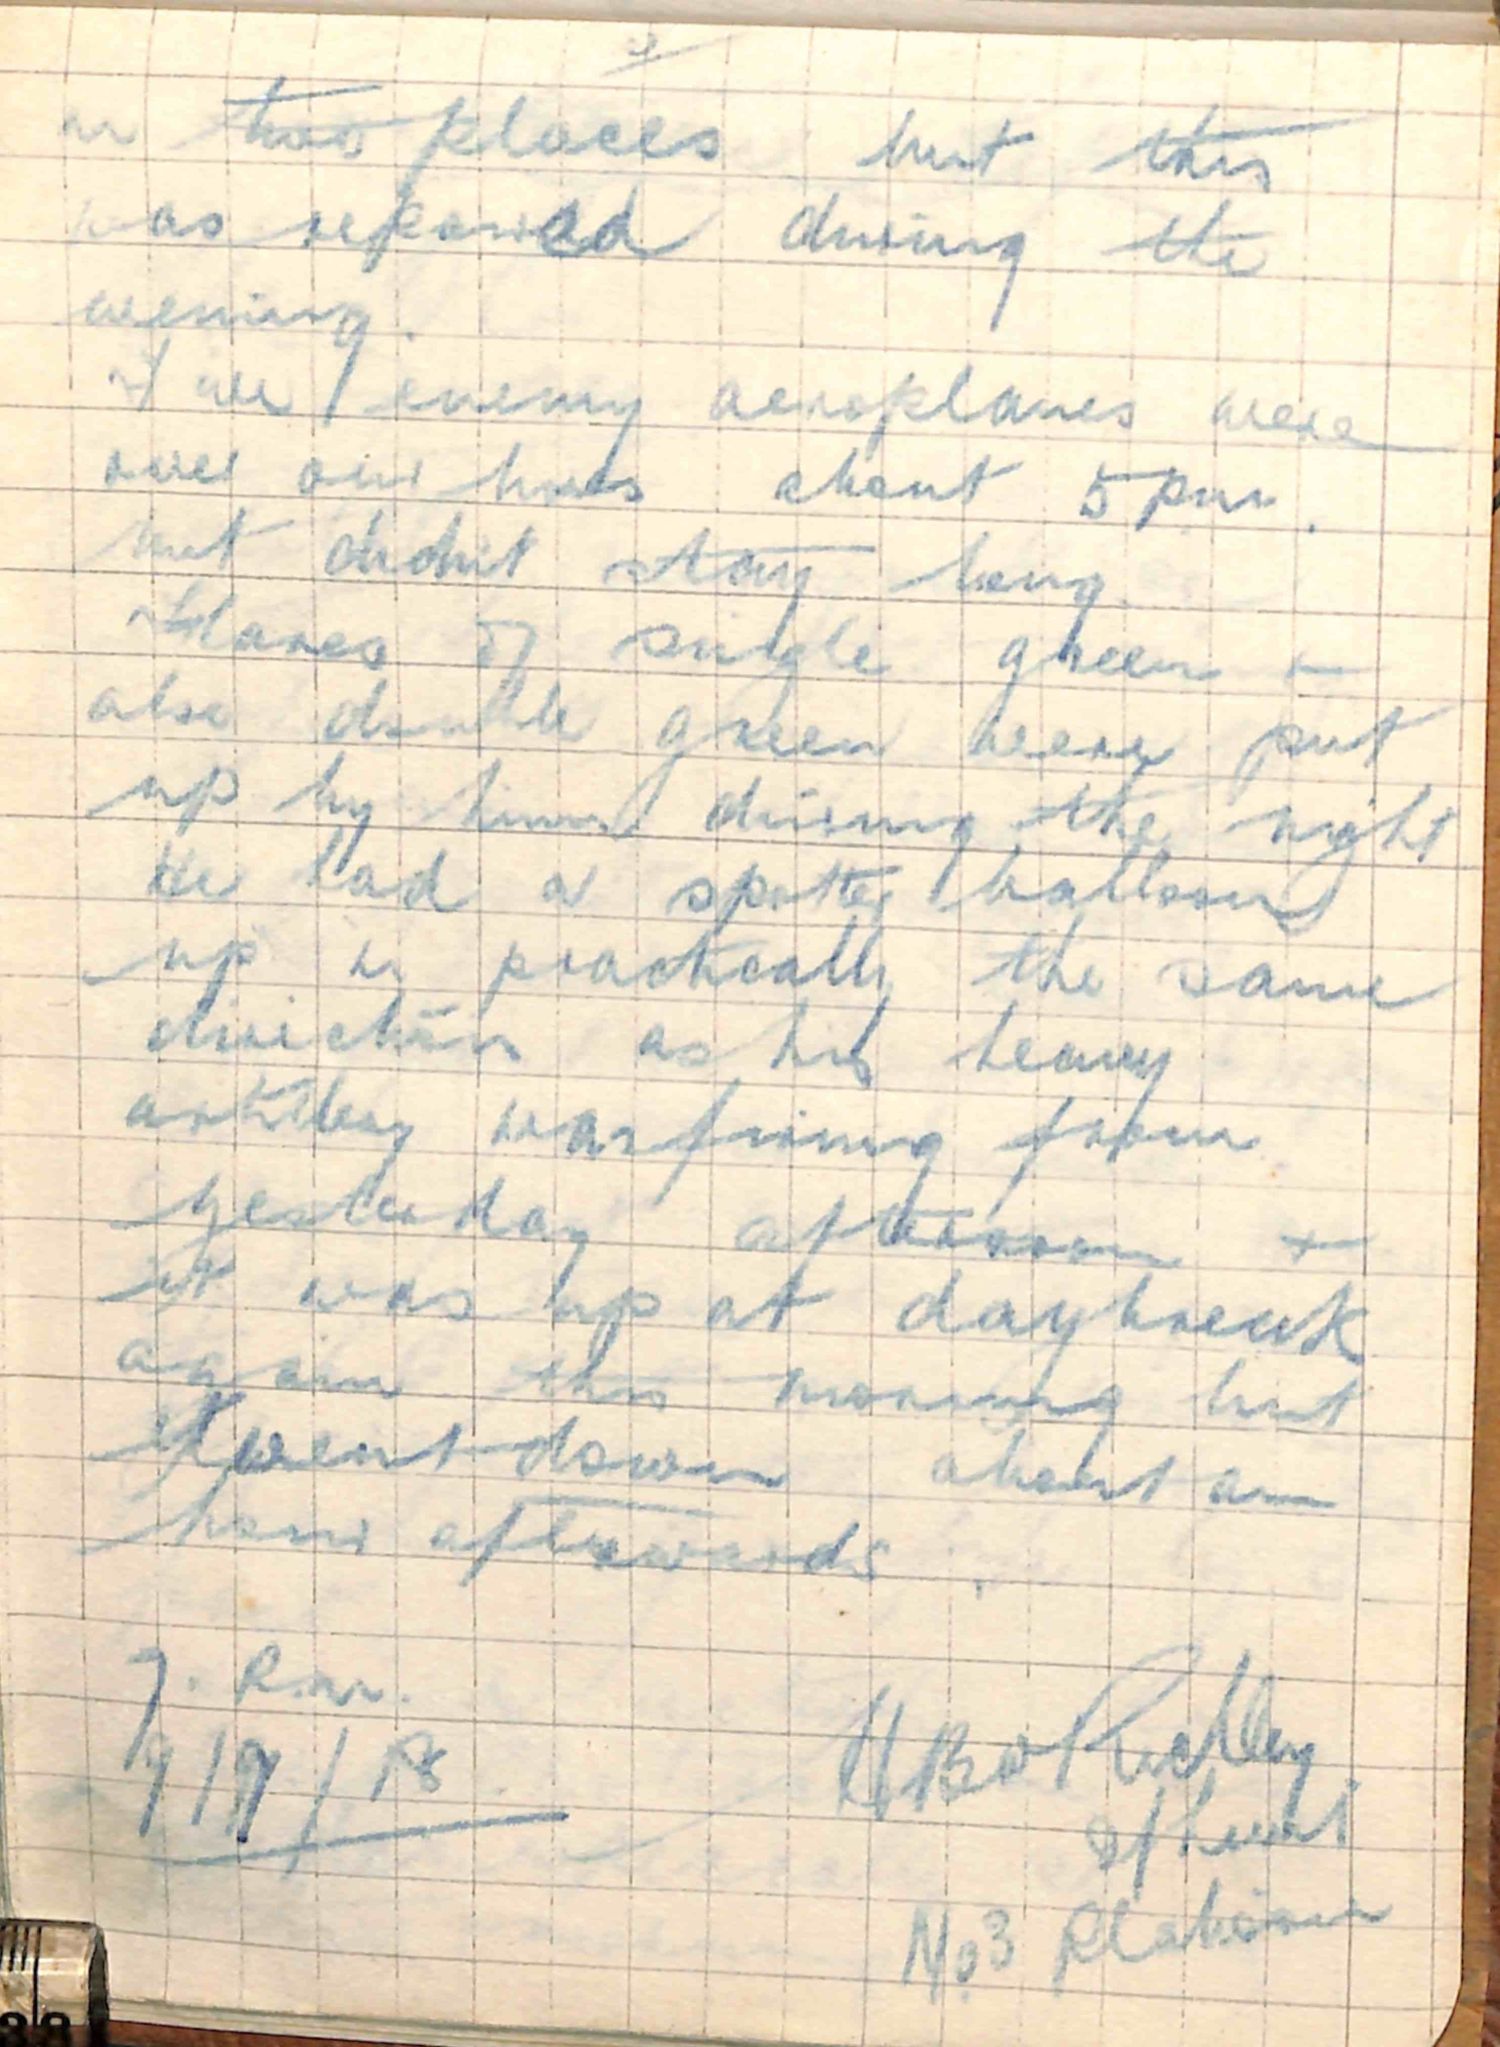 2
in two places but this
was repaired during the
evening.
Five enemy aeroplanes were
over our lines about 5 pm.
but didn't stay long.
Flares of single green +
also double green were put
up by him during the night
He had a spotter balloon
up in practically the same
direction as his heavy
artillery was firing from
yesterday afternoon +
it was up at daybreak
again this morning but
went down about an
hour afterwards.
7.
9/9/18
HB
2/Lieut
No 3 Platoon